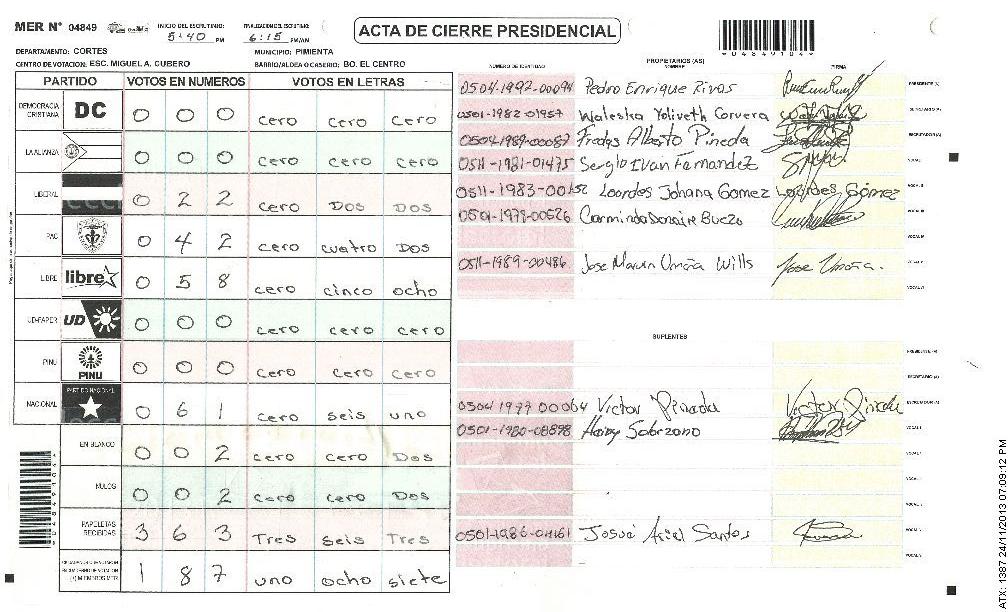 MER N° 04849
INICIO DEL ESCRUTINIO: 5:40 PM
FINALIZACION DEL ESCRUTINIO: 6:15 PM/AM
ACTA DE CIERRE PRESIDENCIAL
*04849104*
DEPARTAMENTO: CORTES
MUNICIPIO: PIMIENTA
CENTRO DE VOTACION: ESC. MIGUEL A. CUBERO
BARRIO/ALDEA O CASERIO: BO. EL CENTRO
PARTIDO VOTOS EN NUMEROS VOTOS EN LETRAS
DEMOCRACIA CRISTIANA DC 0 0 0 cero cero cero
LA ALIANZA 0 0 0 cero cero cero
LIBERAL 0 2 2 cero Dos Dos
PAC 0 4 2 cero cuatro Dos
LIBRE libre 0 5 8 cero cinco ocho
UD-FAPER UD 0 0 0 cero cero cero
PINU PINU 0 0 0 cero cero cero
NACIONAL PARTIDO NACIONAL 0 6 1 cero seis uno
EN BLANCO 0 0 2 cero cero Dos
NULOS 0 0 2 cero cero Dos
PAPELETAS RECIBIDAS 3 6 3 Tres seis Tres
1 8 7 uno ocho siete
NUMERO DE IDENTIDAD PROPIETARIOS (AS) NOMBRE FIRMA
0504-1992-00094 Pedro Enrique Rivas PRESIDENTE (A)
0501-1982-01957 Waleska Yoliveth Corvera SECRETARIO (A)
0504-1989-00087 Fredas Alberto Pineda ESCRUTADOR (A)
0511-1981-01475 Sergio Ivan Fernandez VOCAL I
0511-1983-00152 Lourdes Johana Gomez Lourdes Gómez VOCAL II
0501-1979-00526 Carminda Donaire Buezo VOCAL III
VOCAL IV
0511-1989-00486 Jose Marvin Umaña Wills Jose Umaña. VOCAL V
VOCAL VI
SUPLENTES
PRESIDENTE (A)
SECRETARIO (A)
0504 1977 00064 Victor Pineda Victor Pineda ESCRUTADOR (A)
0501-1980-08898 Heidy Sabrzono VOCAL I
0501-1986-04161 Josué Ariel Santos
*04849104*
ATX: 1387 24/11/2013 07:09:12 PM